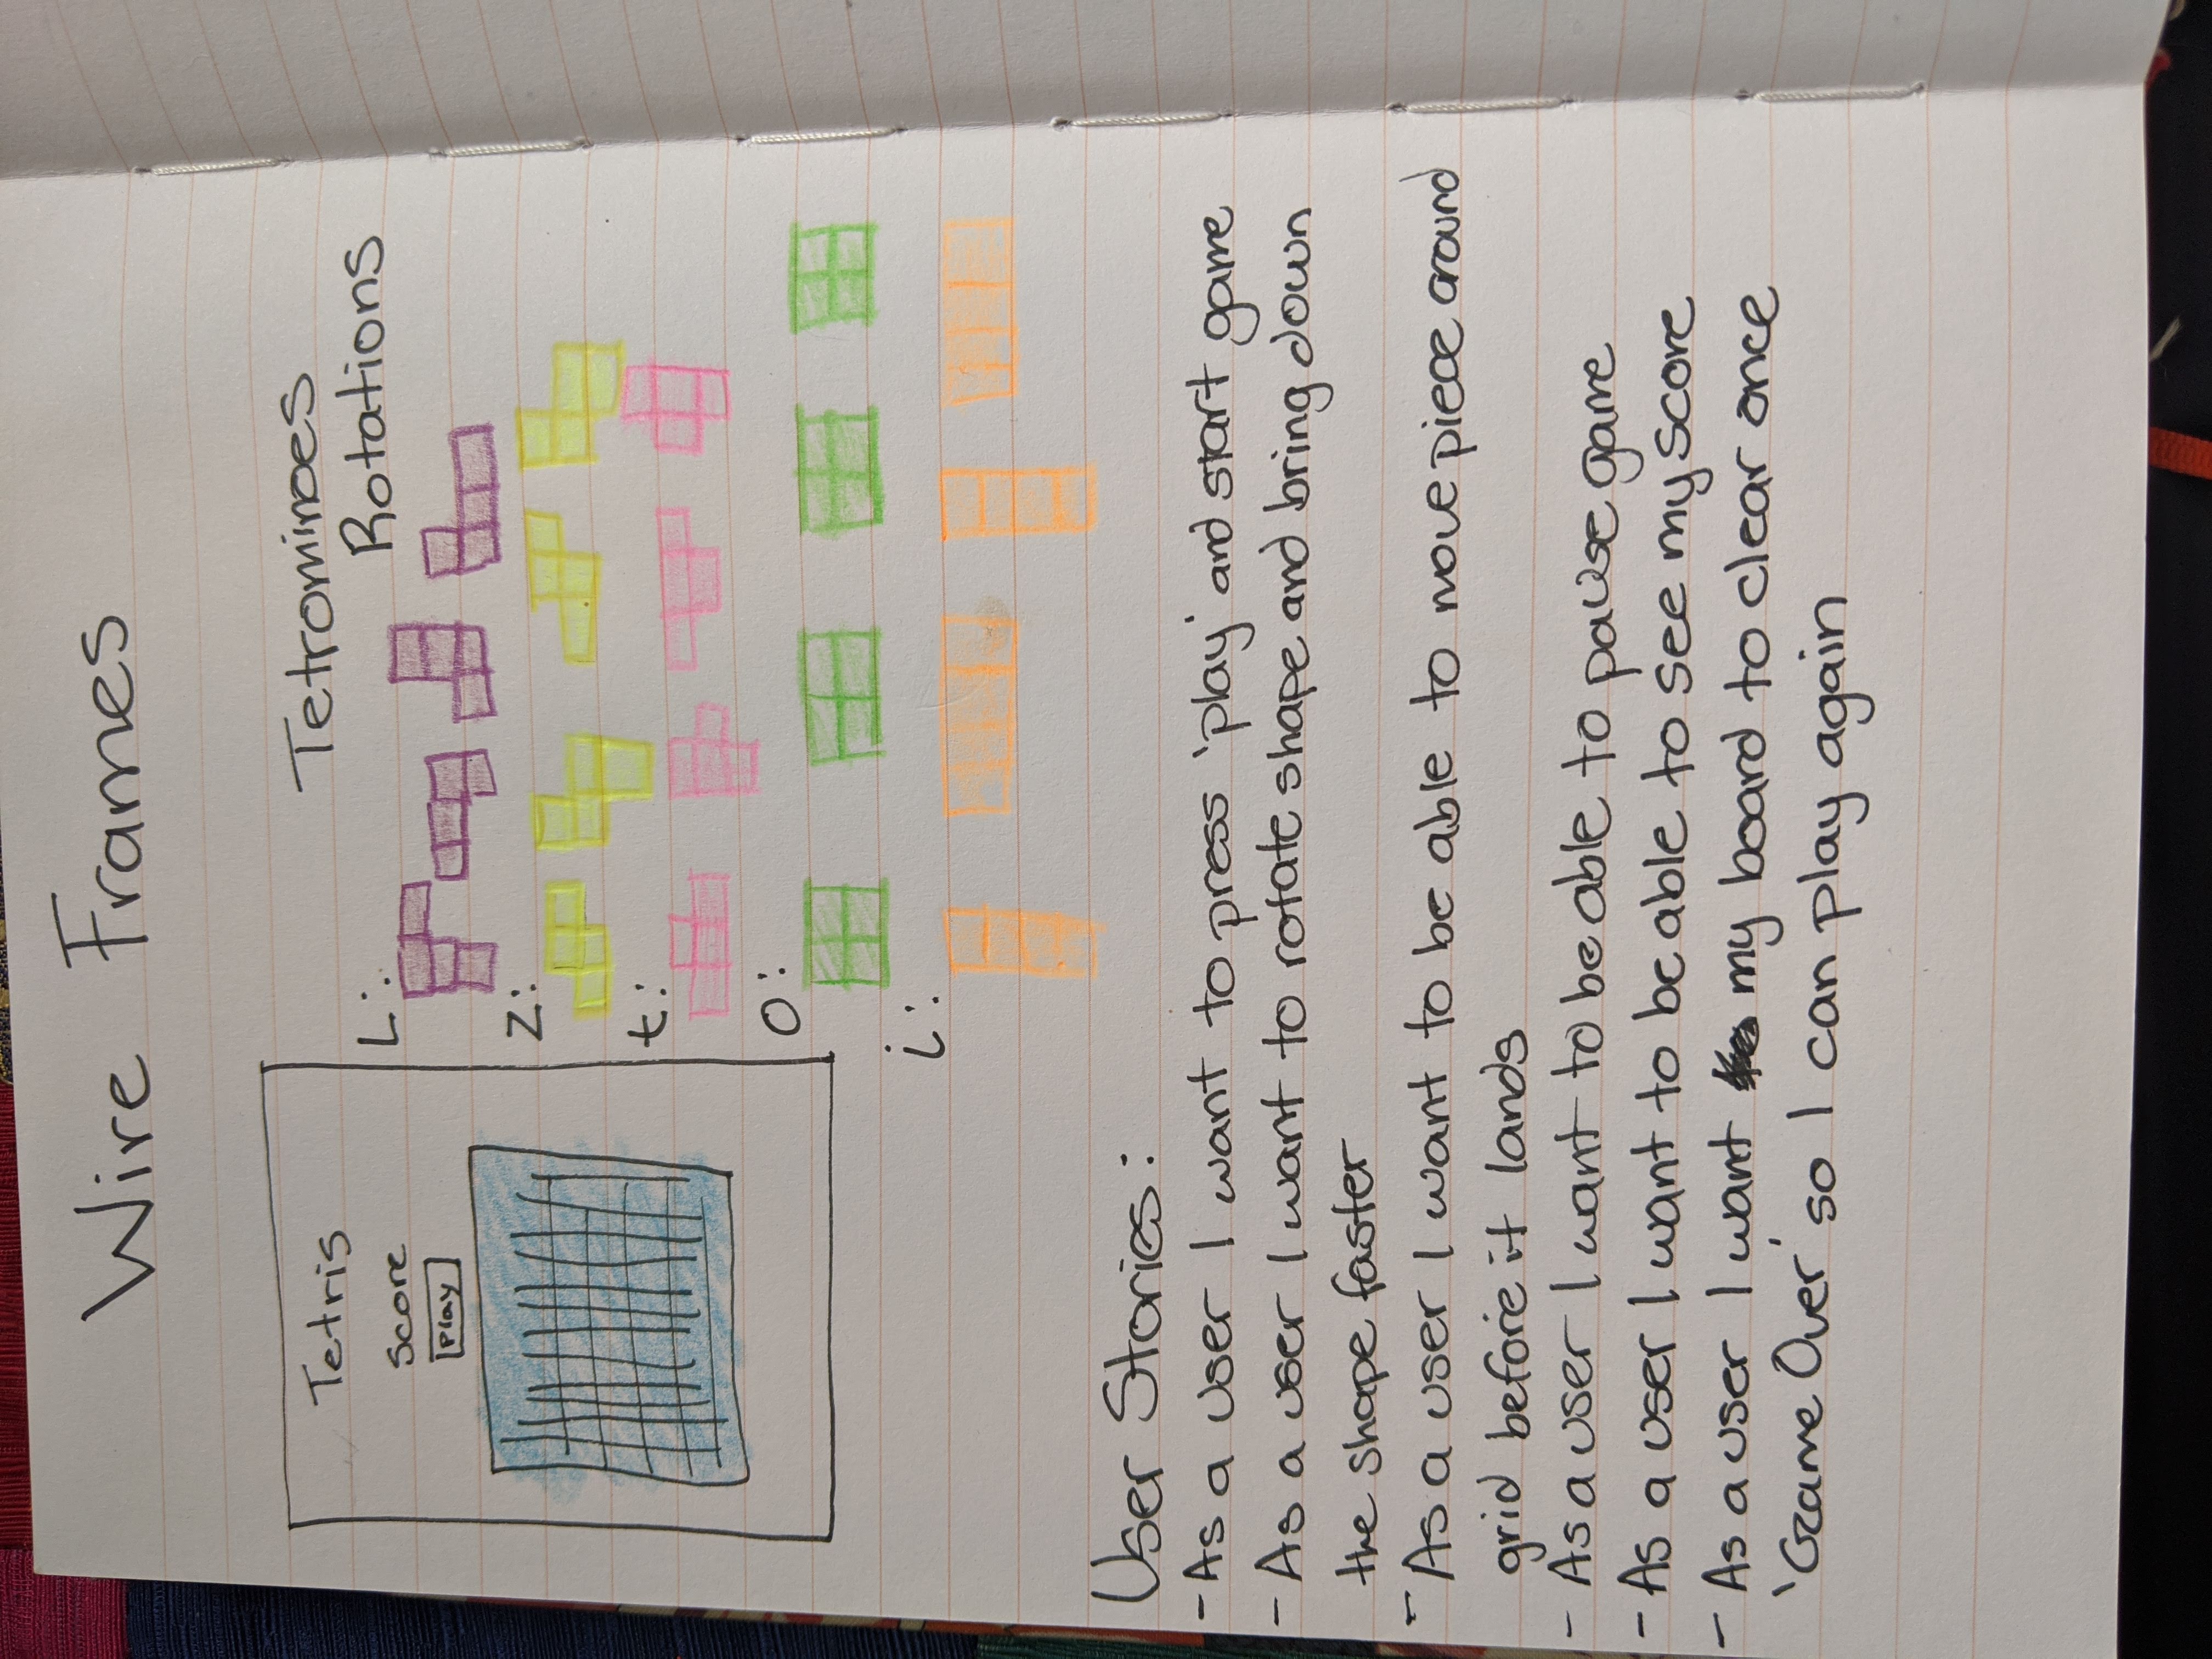 Wire Frames
Tetris
Score
Play
Tetrominoes
Rotations
L:
Z:
t:
O:
i:
User Stories:
- As a user I want to press 'play' and start game
- As a user I want to rotate shape and bring down
the shape faster
- As a user I want to be able to move piece around
grid before it lands
- As a user I want to be able to pause game
- As a user I want to be able to see my score
- As a user I want my board to clear once
'Game Over' so I can play again